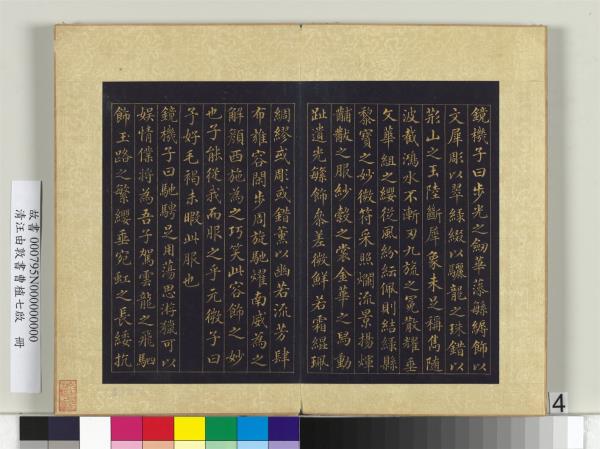 鏡機子曰步光之劒華藻緐縟飾以
文犀彫以翠綠綴以驪龍之珠錯以
荊山之玉陸斷犀象未足稱雋隨
波截鴻水不漸刃九流之冕散耀垂
文華組之纓從風紛紜佩則結綠縣
黎寶之妙微符采照爛流景揚煇
黼黻之服紗縠之裳金華之舄動
趾遺光緐飾參差微鮮若霜緄珮
綢繆或彫或錯薰以幽若流芳肆
布雍容閒步周旋馳燿南威為之
解顏西施為之巧笑此容飾之妙
也子能從我而服之乎元微子曰
予好毛褐未暇此服也
鏡機子曰馳騁足用蕩思游獵可以
娛情僕將為吾子駕雲龍之飛駟
飾玉路之繁纓垂宛虹之長緌抗
故書 000795N000000000
清汪由敦書曹植七啟 冊
4